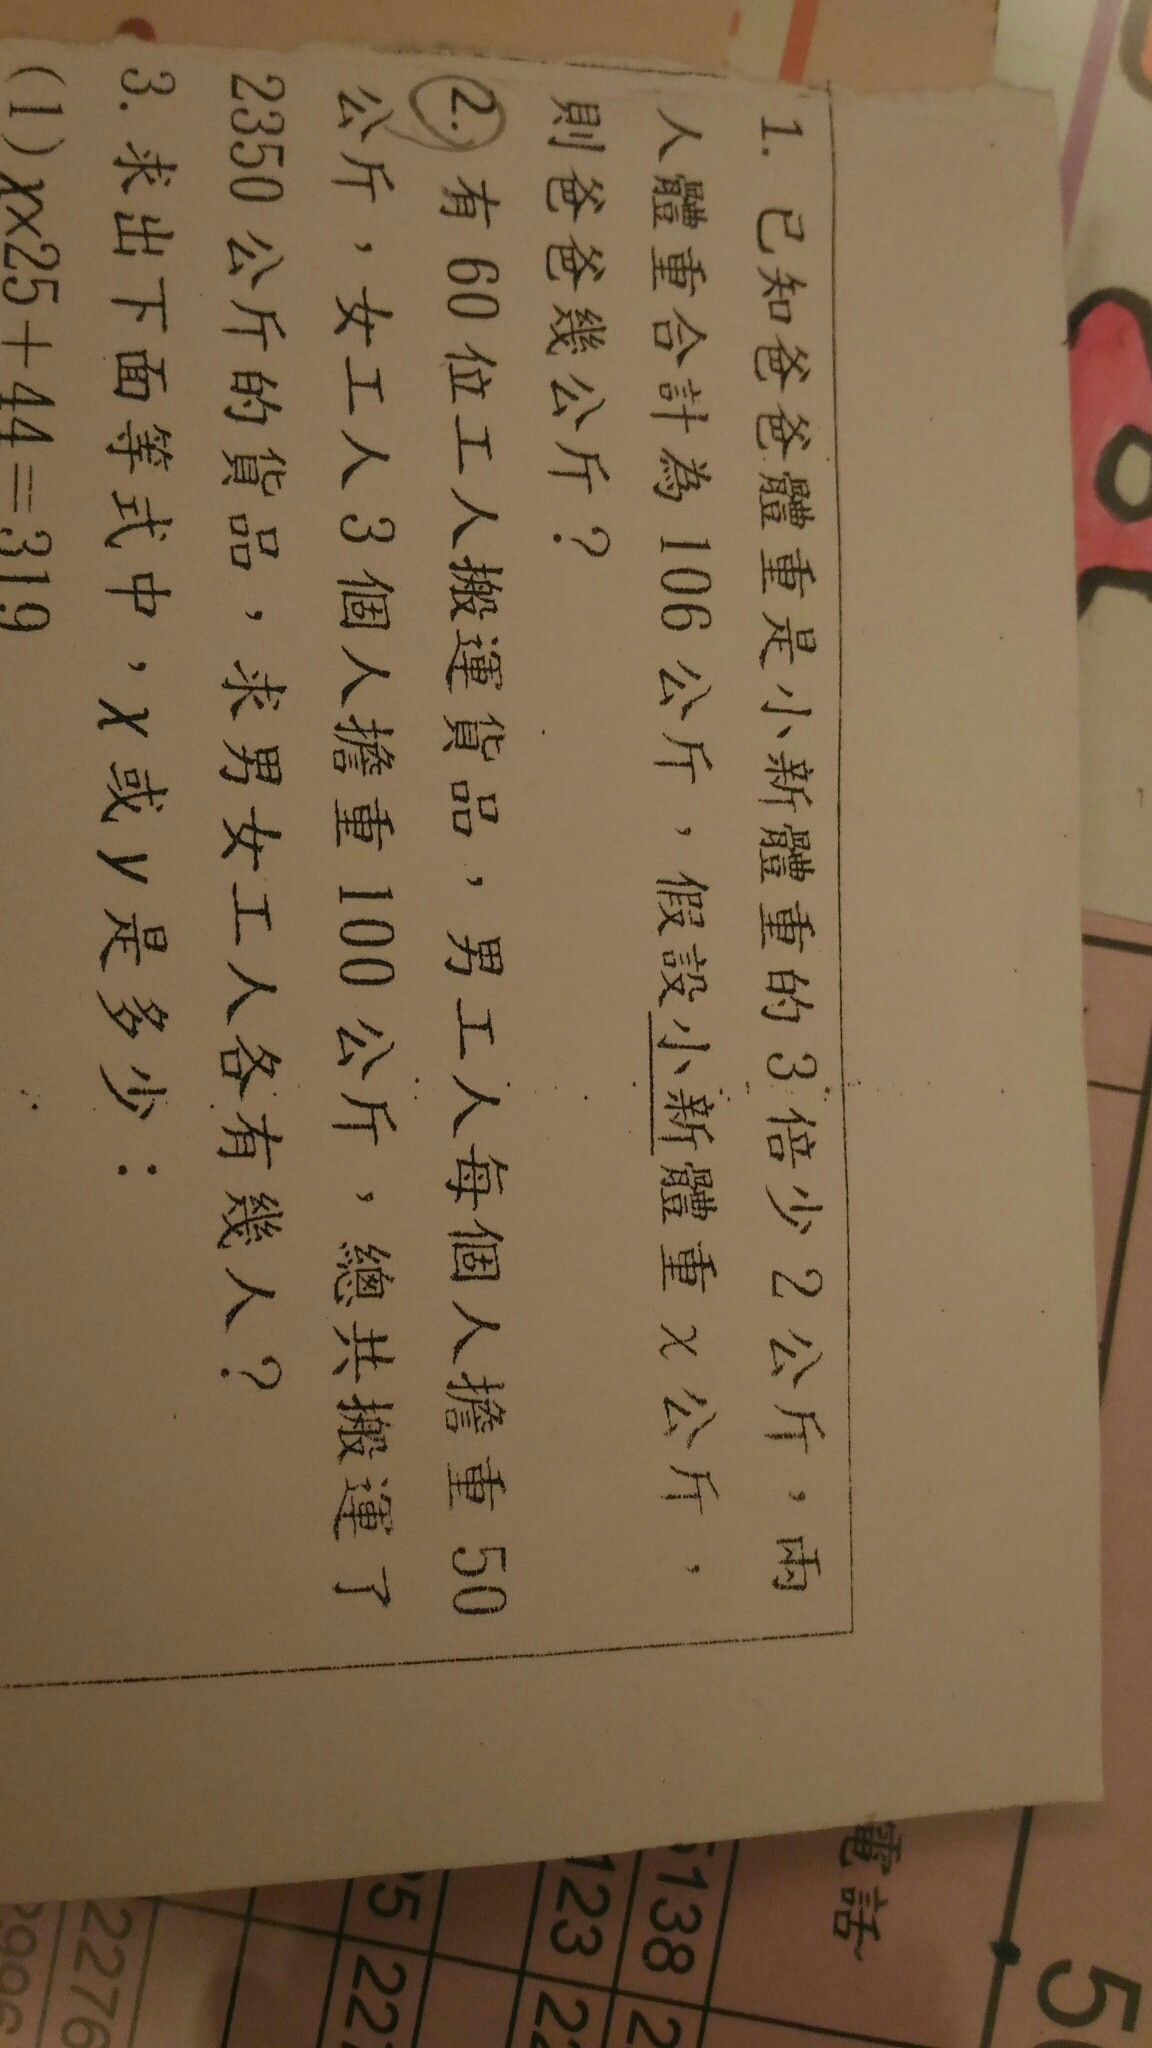 1. 已知爸爸體重是小新體重的3倍少2公斤，兩
人體重合計為106公斤，假設小新體重x公斤，
則爸爸幾公斤？
2. 有60位工人搬運貨品，男工人每個人擔重50
公斤，女工人3個人擔重100公斤，總共搬運了
2350公斤的貨品，求男女工人各有幾人？
3. 求出下面等式中，x或y是多少：
(1) x×25＋44＝319
電話
5138
123